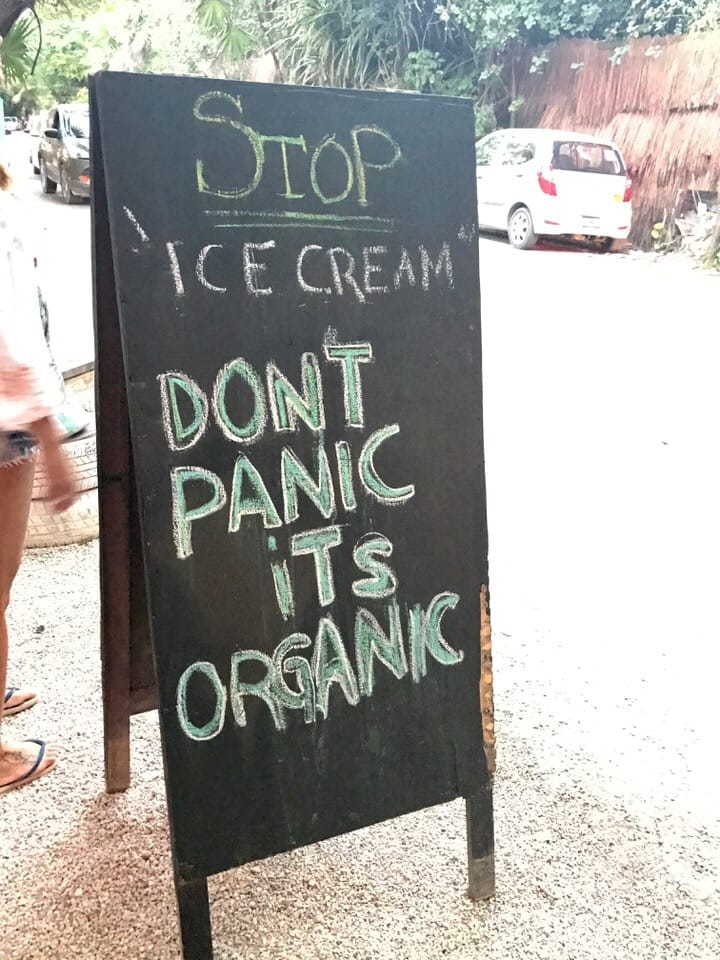 STOP
"ICE CREAM"
DON'T
PANIC
iTS
ORGANIC